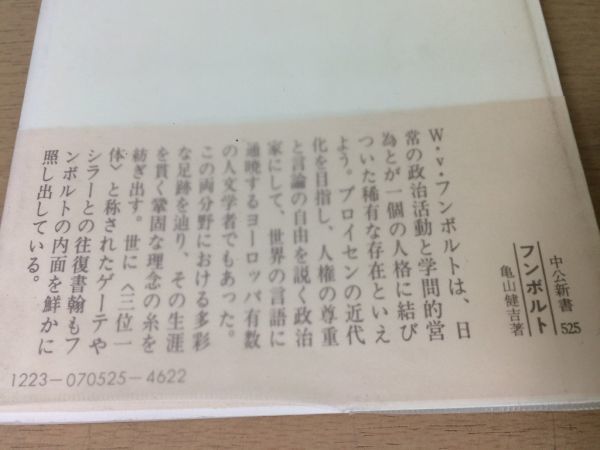 中公新書 525
フンボルト
亀山健吉著
W・v・フンボルトは、日
常の政治活動と学問的営
為とが一個の人格に結び
ついた稀有な存在といえ
よう。プロイセンの近代
化を目指し、人権の尊重
と言論の自由を説く政治
家にして、世界の言語に
通暁するヨーロッパ有数
の人文学者でもあった。
この両分野における多彩
な足跡を辿り、その生涯
を貫く鞏固な理念の糸を
紡ぎ出す。世に〈三位一
体〉と称されたゲーテや
シラーとの往復書翰もフ
ンボルトの内面を鮮かに
照し出している。
1223-070525-4622